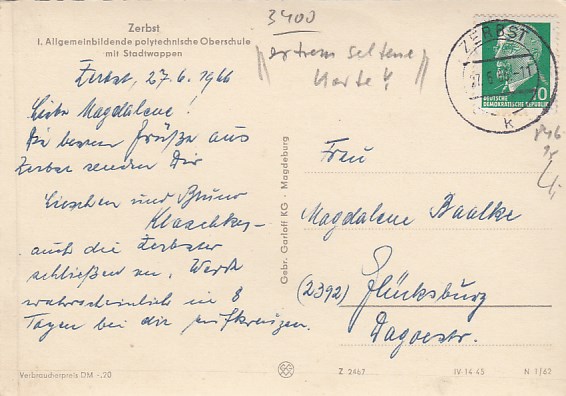 Zerbst
I. Allgemeinbildende polytechnische Oberschule
mit Stadtwappen
3400
"extrem seltene
Karte"
ZERBST
27.6.66-11
k
10
DEUTSCHE
DEMOKRATISCHE REPUBLIK
Zerbst, 27.6.1966
Liebe Magdalene!
Die besten Grüße aus
Zerbst senden Dir
Lieschen und Bruno
auch die Zerbster
schließen an. Werde
wahrscheinlich in 8
Tagen bei dir aufkreuzen.
Gebr. Garloff KG · Magdeburg
Frau
Magdalene Baalke
(2392) Glücksburg
Verbraucherpreis DM -,20
Z 2467
IV-14-45
N 1/62